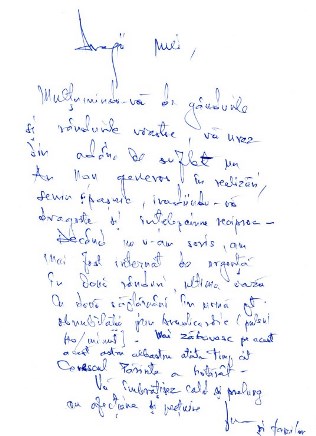 Dragă Puci,
Mulțumindu-vă de gândurile
și rândurile voastre, vă urez
din adânc de suflet un
An Nou generos în realizări,
dragoste și înțelegere reciprocă -
Decând nu v-am scris, am
mai fost internat de urgență
în două rânduri, ultima oară
cu două săptămâni în urmă pt.
Mai zăbovesc pe acest
acest astru albastru atâta timp cât
Cerescul Părinte a hotărât -
Vă îmbrățișez cald și prelung
cu afecțiune și prețuire